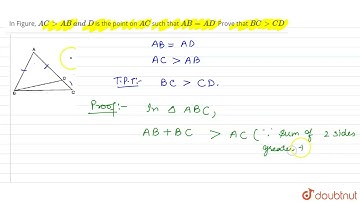 In Figure, AC > AB and D is the point on AC such that AB = AD. Prove that BC > CD
A
B
C
D
AB = AD
AC > AB
T.P.T:- BC > CD.
Proof:- In △ ABC,
AB + BC > AC (∵ sum of 2 sides
greater
doubtnut